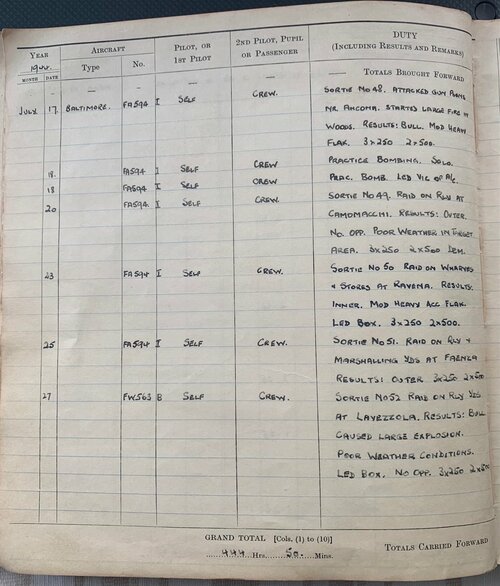 YEAR AIRCRAFT PILOT, OR 2ND PILOT, PUPIL DUTY
1944. 1ST PILOT OR PASSENGER (INCLUDING RESULTS AND REMARKS)
MONTH DATE Type No.
— — — — TOTALS BROUGHT FORWARD
JULY 17. BALTIMORE. FA594 I SELF CREW. SORTIE No 48. ATTACKED GUN
NR. ANCONA. STARTED LARGE FIRE IN
WOODS. RESULTS: BULL. MOD HEAVY
FLAK. 3x250 2x500.
18. FA594 I SELF CREW PRACTICE BOMBING. SOLO.
18 FA594 I SELF CREW PRAC. BOMB. LED VIC OF A/C.
20 FA594. I SELF CREW. SORTIE No 49. RAID ON RLY AT
RESULTS: OUTER.
NO OPP. POOR WEATHER IN TARGET
AREA. 3x250 2x500
23 FA594 I SELF CREW. SORTIE No 50 RAID ON WHARVES
& STORES AT RAVENA. RESULTS:
INNER. MOD HEAVY ACC FLAK.
LED BOX. 3x250 2x500.
25 FA594 I SELF CREW. SORTIE No 51. RAID ON RLY &
MARSHALLING YDS AT FAENZA
RESULTS: OUTER 3x250 2x500
27 FW563 B SELF CREW. SORTIE No 52 RAID ON RLY YDS
AT LAVEZZOLA. RESULTS: BULL
CAUSED LARGE EXPLOSION.
POOR WEATHER CONDITIONS.
LED BOX. NO OPP. 3x250 2x500
GRAND TOTAL [Cols. (1) to (10)]
444 Hrs. 50. Mins.
TOTALS CARRIED FORWARD